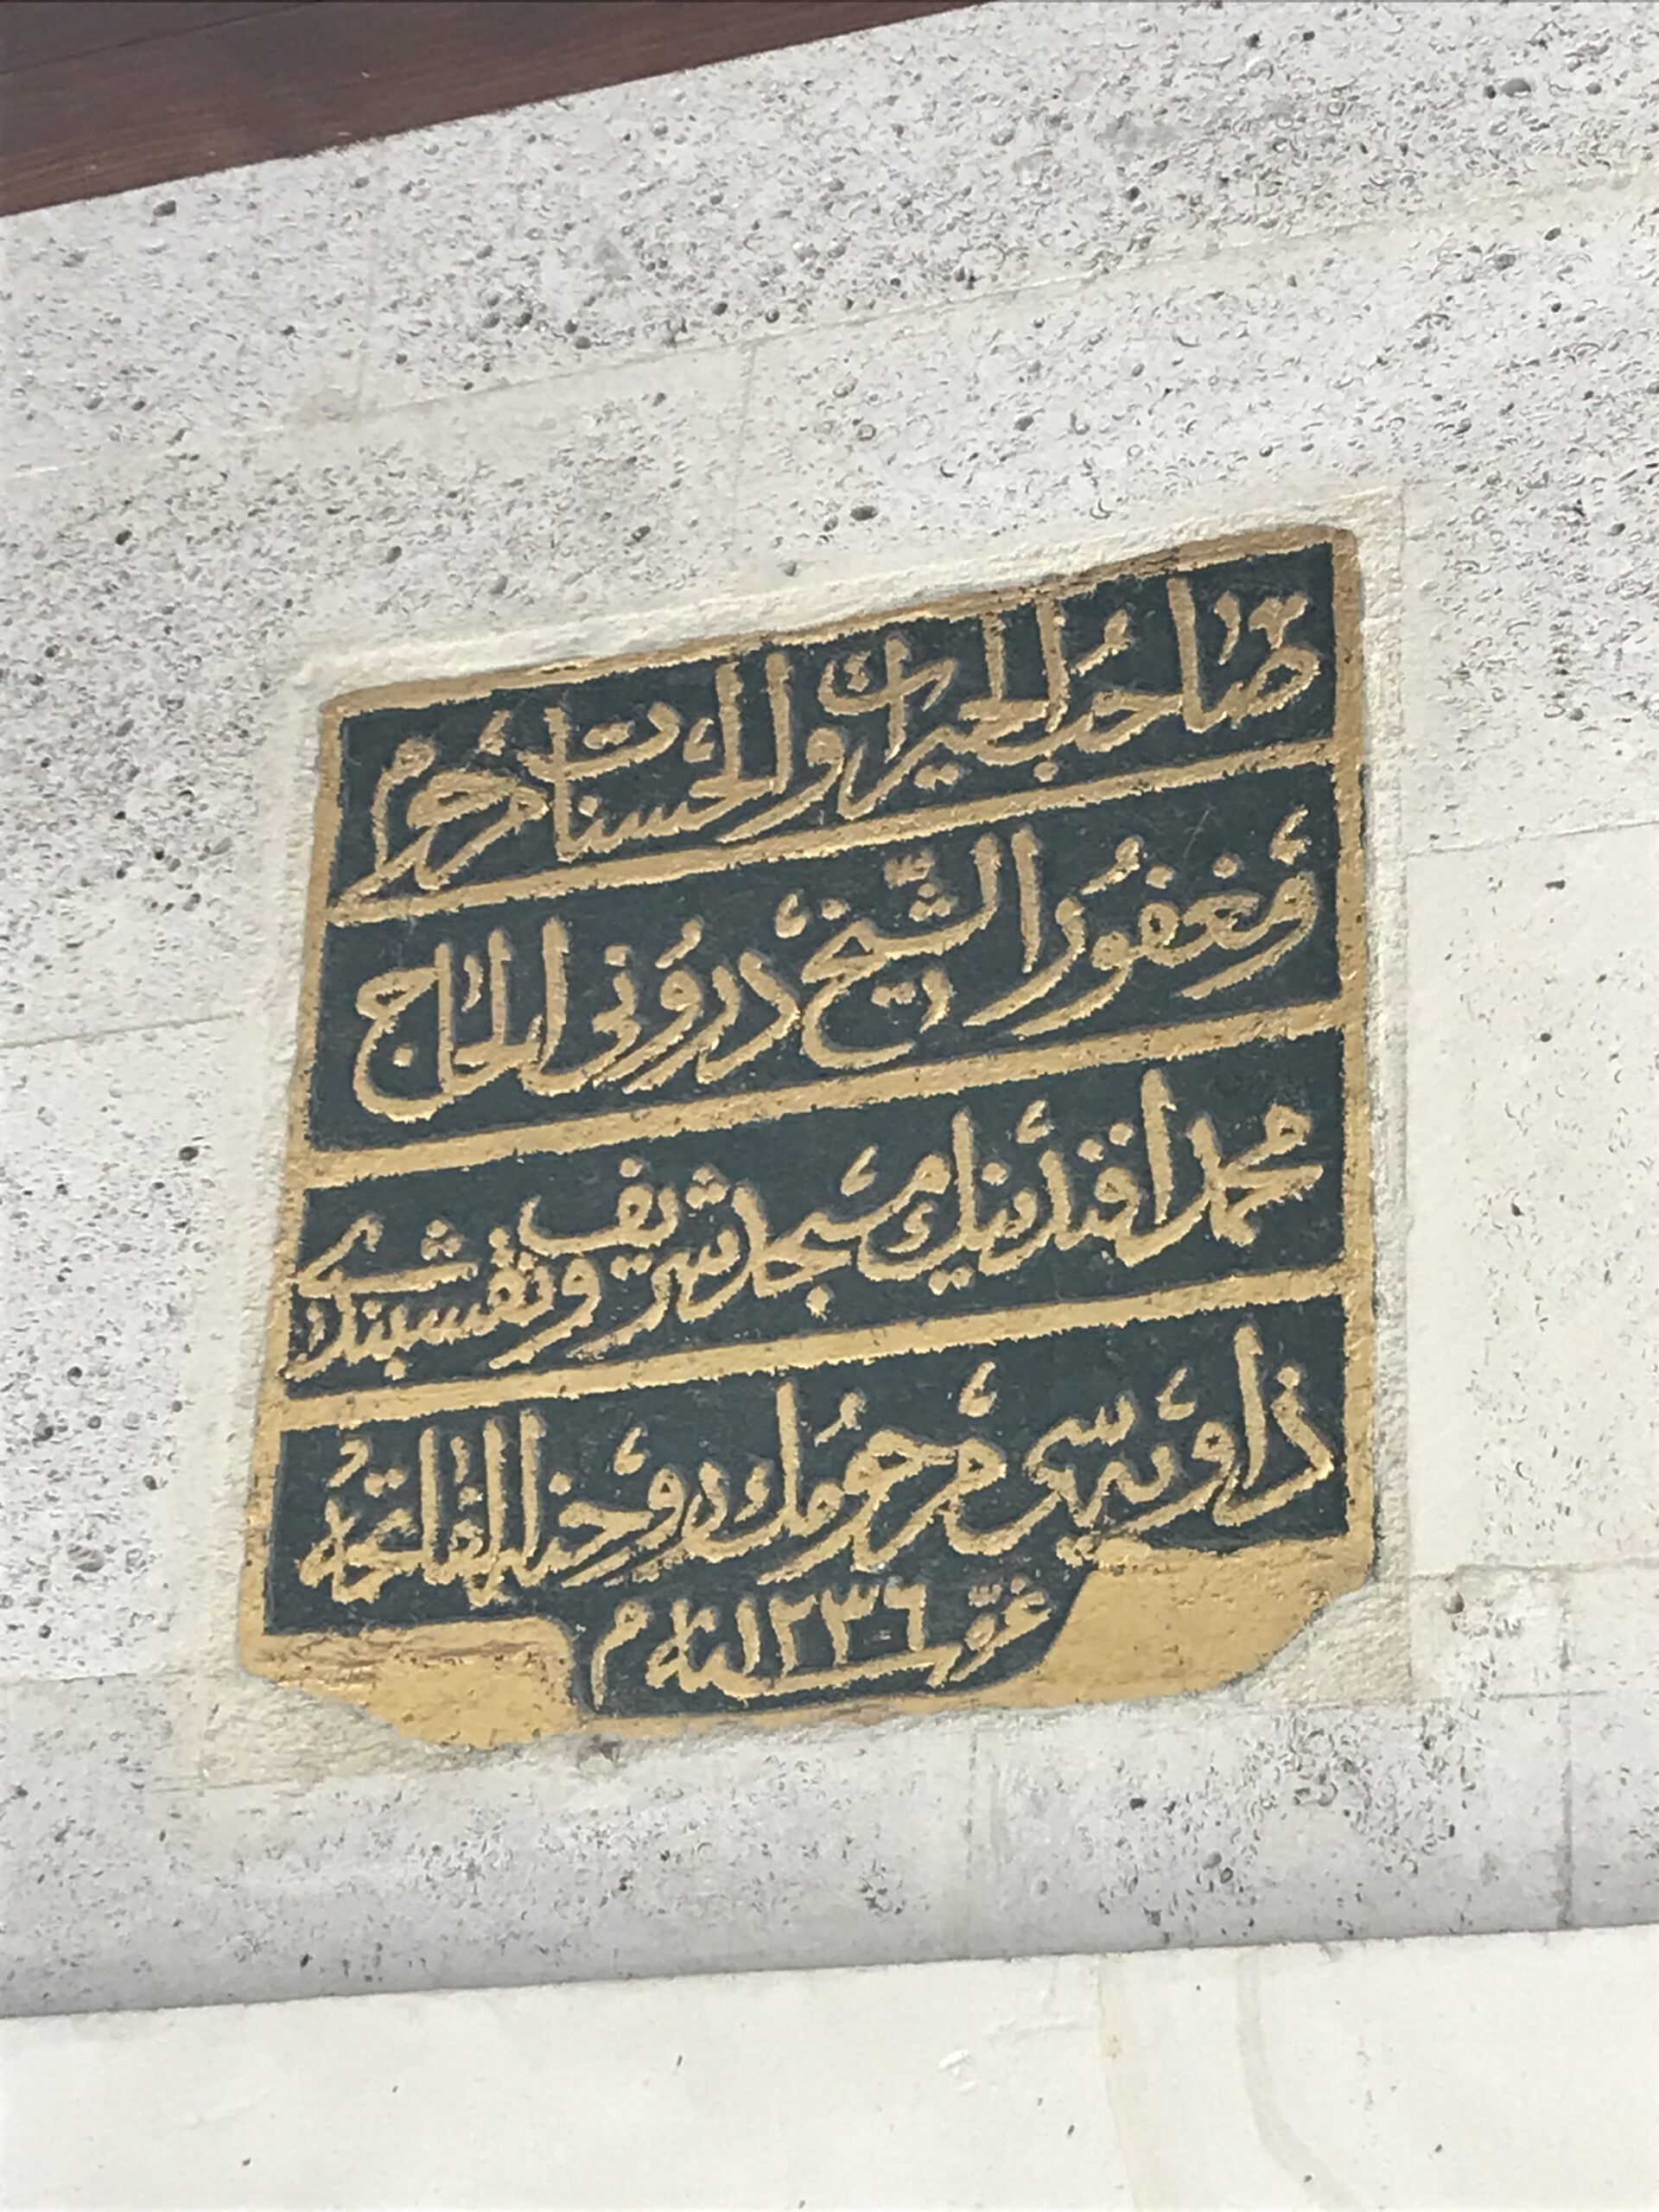 صاحب الخيرات والحسنات مرحوم
مغفور الشيخ دروني الحاج
محمد افندينك مسجد شريف ونقشبندى
زاويه سى مرحومك روحنه الفاتحه
غره سنه ١٢٣٦ م